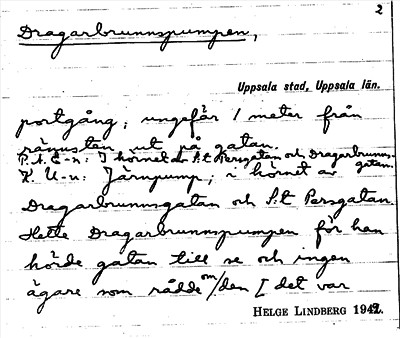 2
Dragarbrunnspumpen,
Uppsala stad, Uppsala län.
portgång; ungefär 1 meter från
rännsten ut på gatan.
P. A. E-n: I hörnet S:t Persgatan och Dragarbrunns-
gatan.
K. U-n: Järnpump; i hörnet av
Dragarbrunnsgatan och S:t Persgatan.
Hette Dragarbrunnspumpen för han
hörde gatan till se och ingen
ägare som rådde om/den [ det var
HELGE LINDBERG 1942.